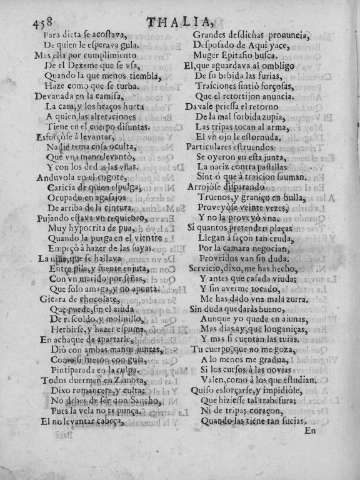 458
THALIA,
Para dieta se acostava,
De quien le esperava gula.
Mas ella por cumplimiento
De el Dexeme que se vsa,
Quando la que menos tiembla,
Haze como que se turba.
Devanada en la camisa,
La cama, y los braços hurta
A quien las alteraciones
Tiene en el cuerpo difuntas.
Esforçose à levantar,
Nadie tema cosa oculta,
Que vna mano levantò,
Y con los dedos las vñas.
Anduvola en el cogote,
Caricia de quien espulga;
Ocupado en agasajos
De arriba de la cintura.
Pujando estava vn requiebro,
Muy hypocrita de pua,
Quando la purga en el vientre
Empeçò à hazer de las suyas.
La niña, que se hallava
Entre pila, y fuente enjuta,
Con vn marido por señas,
Que solo amaga, y no apunta.
Gicara de chocolate,
Que puede, sin el ayuda
De rescoldo, y molinillo,
Herbirse, y hazer espuma.
En achaque de apartarle,
Diò con ambas manos juntas,
Como si fueron con guia,
Pintiparada en la culpa.
Todos duermen en Zamora,
Dixo romancera, y culta;
No debes de ser don Sancho,
Pues la vela no te punça.
El no levantar cabeça,
Grandes desdichas pronuncia,
Desposado de Aqui yace,
Muger Epitafio busca.
El, que aguardava al ombligo
De su bebida las furias,
Traiciones sintiò forçosas,
Que el retortijon anuncia.
Davale priessa el retorno
De la mal sorbida zupia,
Las tripas tocan al arma,
El vè ojo le estornuda,
Particulares estruendos
Se oyeron en esta junta,
La nariz contra pastillas
Sintiò que à traicion human.
Arrojòse disparando
Truenos, y graniço en bulla,
Proveyòse veinte vezes;
Y no la proveyò vna.
Si quantos pretenden plaças
Llegan à saçon tan cruda,
Por la camara negocian,
Proveidos van sin duda.
Servicio, dixo, me has hecho,
Y antes que casada viuda;
Y sin averme tocado,
Me has dado vna mala zurra.
Sin duda que darás bueno,
Aunque yo quede en ayunas,
Mas dias, y que longaniças,
Y mas si cuentan las tuias.
Tu cuerpo que no me goza,
A lo menos me gradua,
Si los cursos à las novias
Valen, como à los que estudian.
Quiso esforçarse, y impidiòle,
Que hiziesse tal trabesura;
Ni de tripas coraçon,
Quando las tiene tan sucias.
En